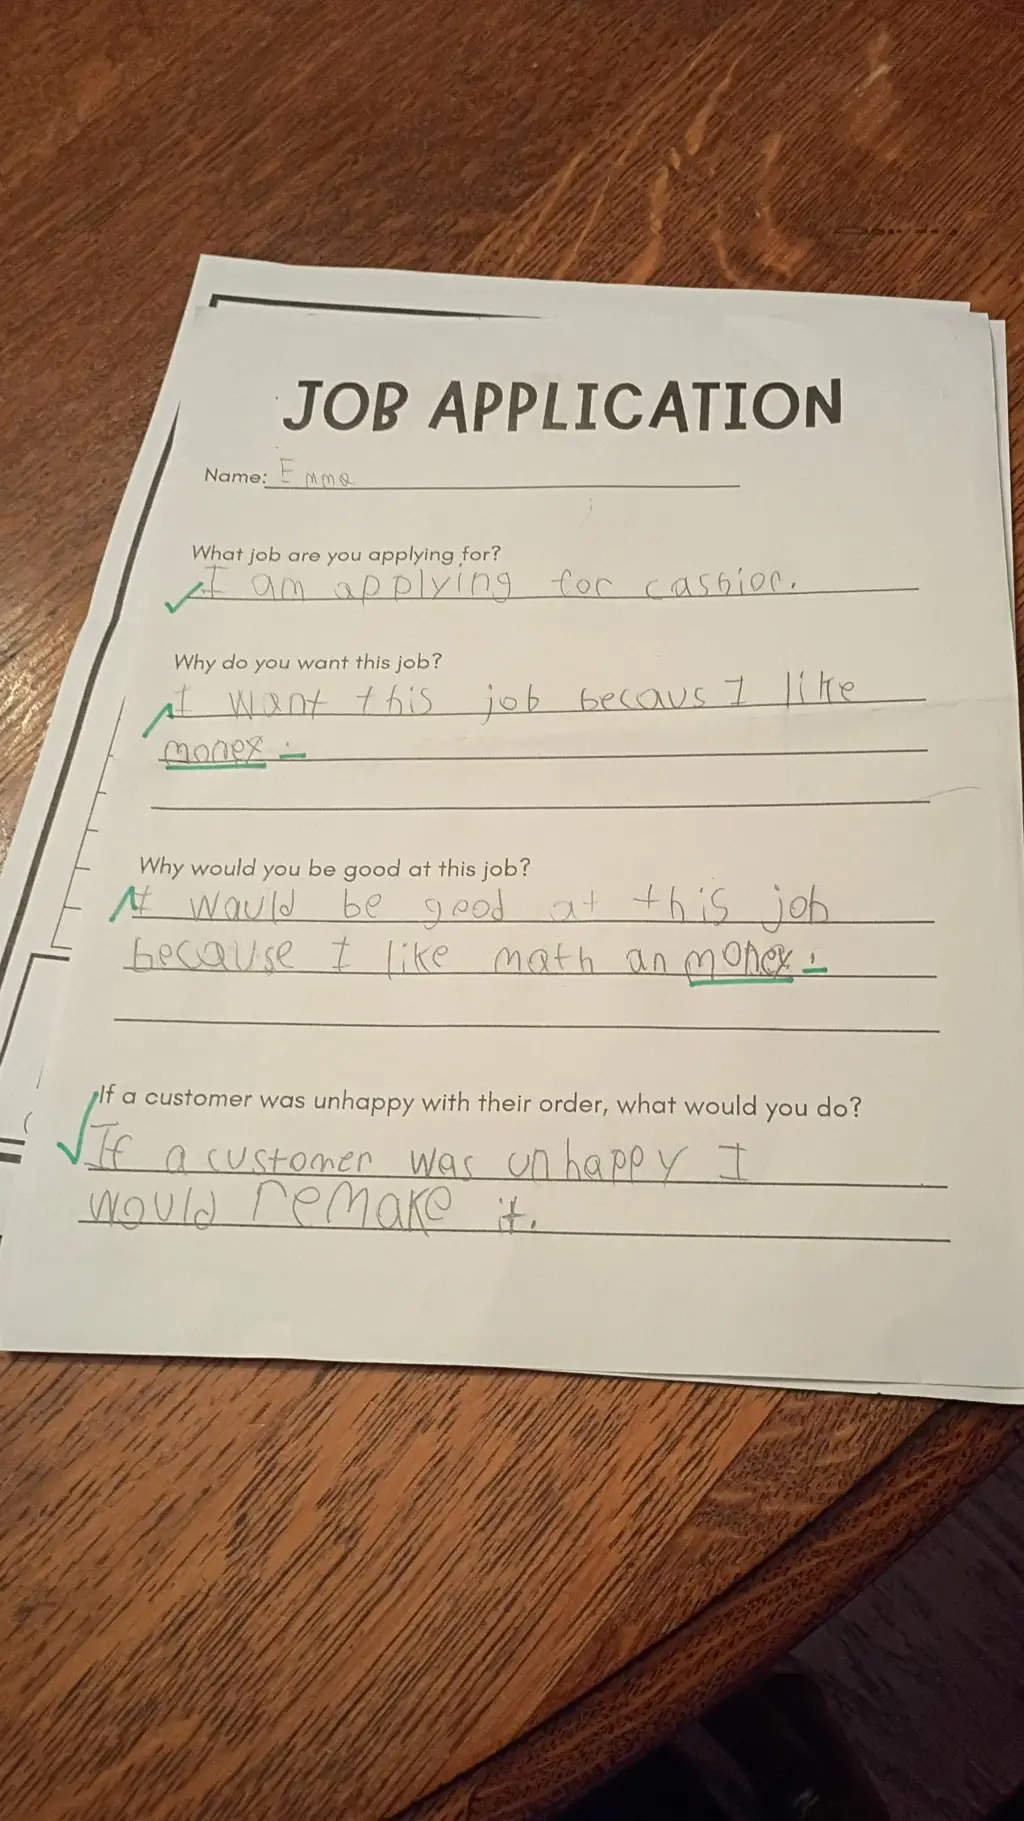 JOB APPLICATION
Name: Emma
What job are you applying for?
I am applying for cashior.
Why do you want this job?
I want this job becaus I like
money.
Why would you be good at this job?
I would be good at this job
because I like math an money.
If a customer was unhappy with their order, what would you do?
If a customer was unhappy I
would remake it.